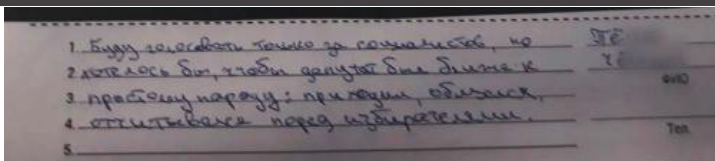 1. Буду голосовать только за социалистов, но
2. хотелось бы, чтобы депутат был ближе к
3. простому народу: приходил, общался,
4. отчитывался перед избирателями.
5.
ФИО
Тел.